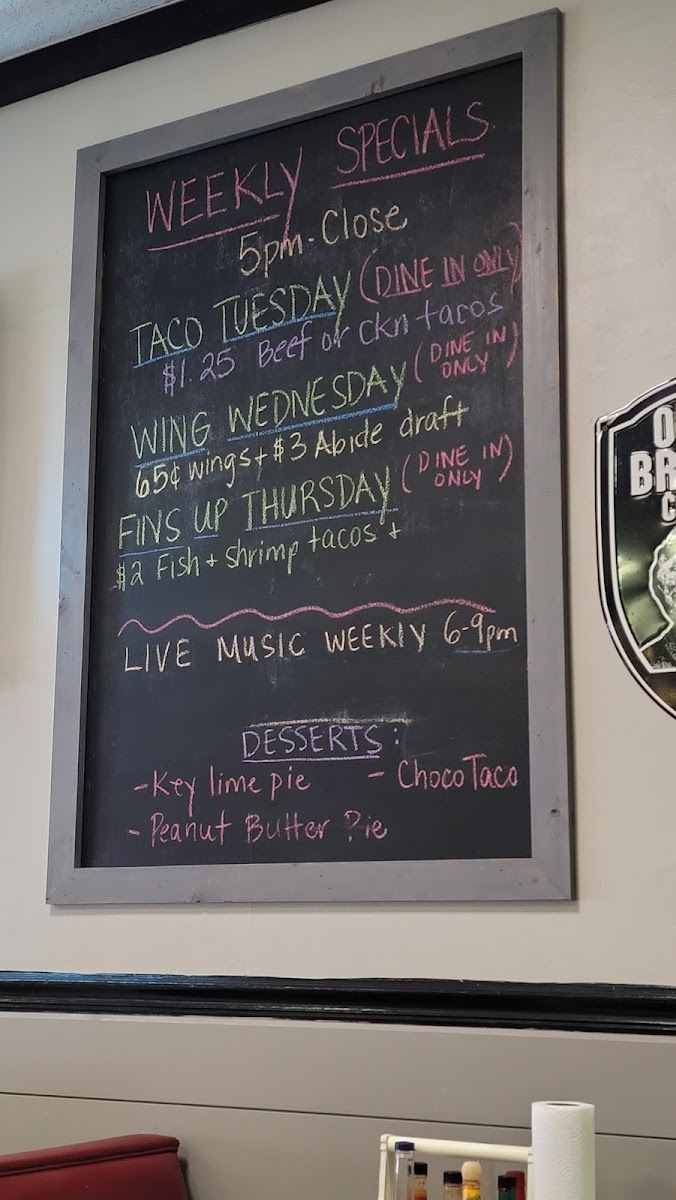 WEEKLY SPECIALS
5pm-Close
TACO TUESDAY (DINE IN ONLY)
$1.25 Beef or ckn tacos
WING WEDNESDAY (DINE IN ONLY)
65¢ wings + $3 Abide draft
FINS UP THURSDAY (DINE IN ONLY)
$2 Fish + shrimp tacos +
LIVE MUSIC WEEKLY 6-9pm
DESSERTS:
- Key lime pie - Choco Taco
- Peanut Butter Pie